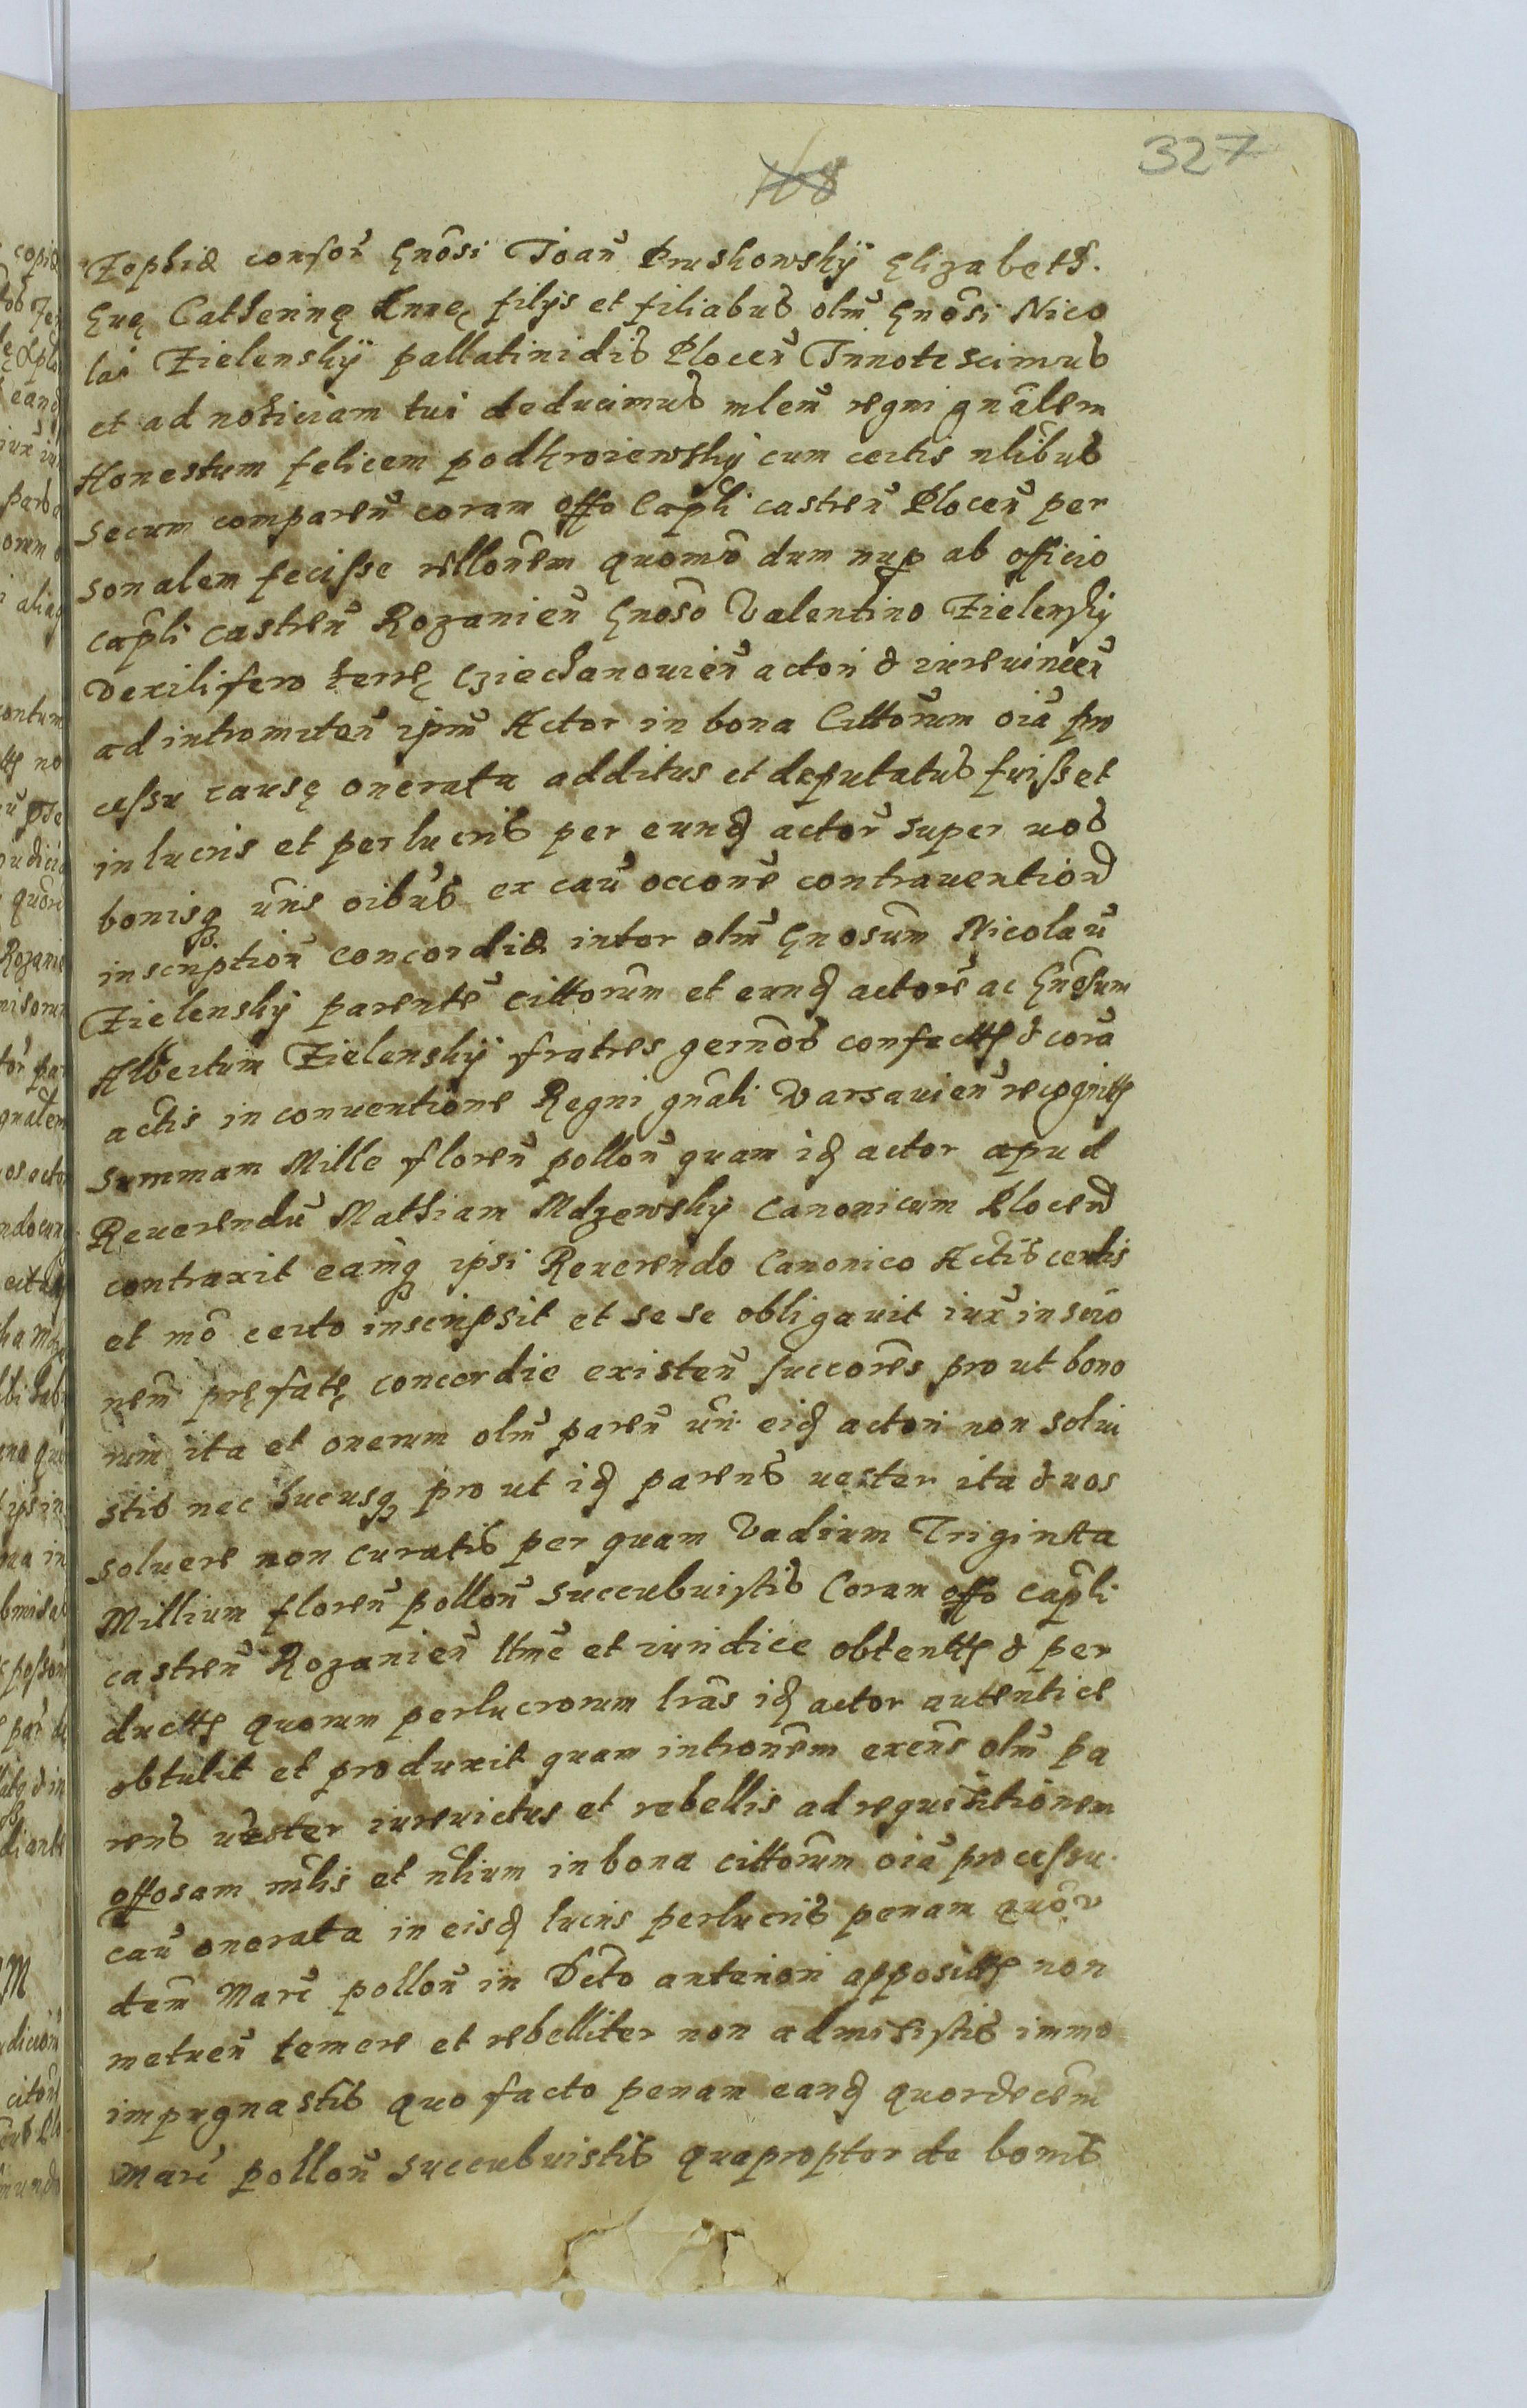 327
168
Zophiae consor Gnosi Joan Pruskowskÿ Elizabeth.
Euę Catherinę Annę filÿs et filiabus olm Gnosi Nico
lai Zielenskÿ pallatinidis Plocen Innotescimus
et ad noticiam tui deducimus mlem regni gnalem
Honestum felicem podkroiewskÿ cum certis nlibus
secum comparen coram offo Capli castren Plocen per
sonalem fecisse rellonem quomo dum nup ab officio
capli castren Rozanien Gnoso Valentino Zielenskÿ
Vexilifero terrę Cziechanowien actori & iurevincen
ad intromiten ipm Actor in bona Cittorum oia pro
cessu causę onerata additus et deputatus fuisset
in lucris et perlucris per eund actor super uos
bonisq uris oibus ex cau occone contrauention
inscription concordiae inter olm Gnosum Nicolau
Zielenskÿ parente cittorum et eund actore ac Gnosum
Albertum Zielenskÿ fratres germos confectis & cora
actis in conuentione Regni gnali Varsauien recognitis
summam Mille floren pollon quam id actor apud
Reuerendu Mathiam Mdzewskÿ Canonicum Plocen
contraxit eamq ipsi Reuerendo Canonico Actis certis
et mo certo inscripsit et se se obligauit iux inscrio
nem pręfatę concordie existen succores pro ut bono
rum ita et onerum olm paren uri eid actori non solui
stis nec hucusq pro ut id parens uester ita & uos
soluere non curatis per quam Vadium Triginta
Millium floren pollon succubuistis Coram offo capli
castren Rozanien ltme et iuridice obtentis & per
ductis quorum perlucrorum lras id actor autentice
obtulit et produxit quam intronem exens olm pa
rens uester iurevictus et rebellis ad requisitionem
offosam mlis et nlium in bona cittorum oia processu
cau onerata in eisd lucris perlucris penam quor
dem Marc pollon in Dcto anteriori appositis non
metuen temere et rebelliter non admisistis immo
impugnastis quo facto penam eand quordecem
Marc pollon succubuistis quapropter de bonis